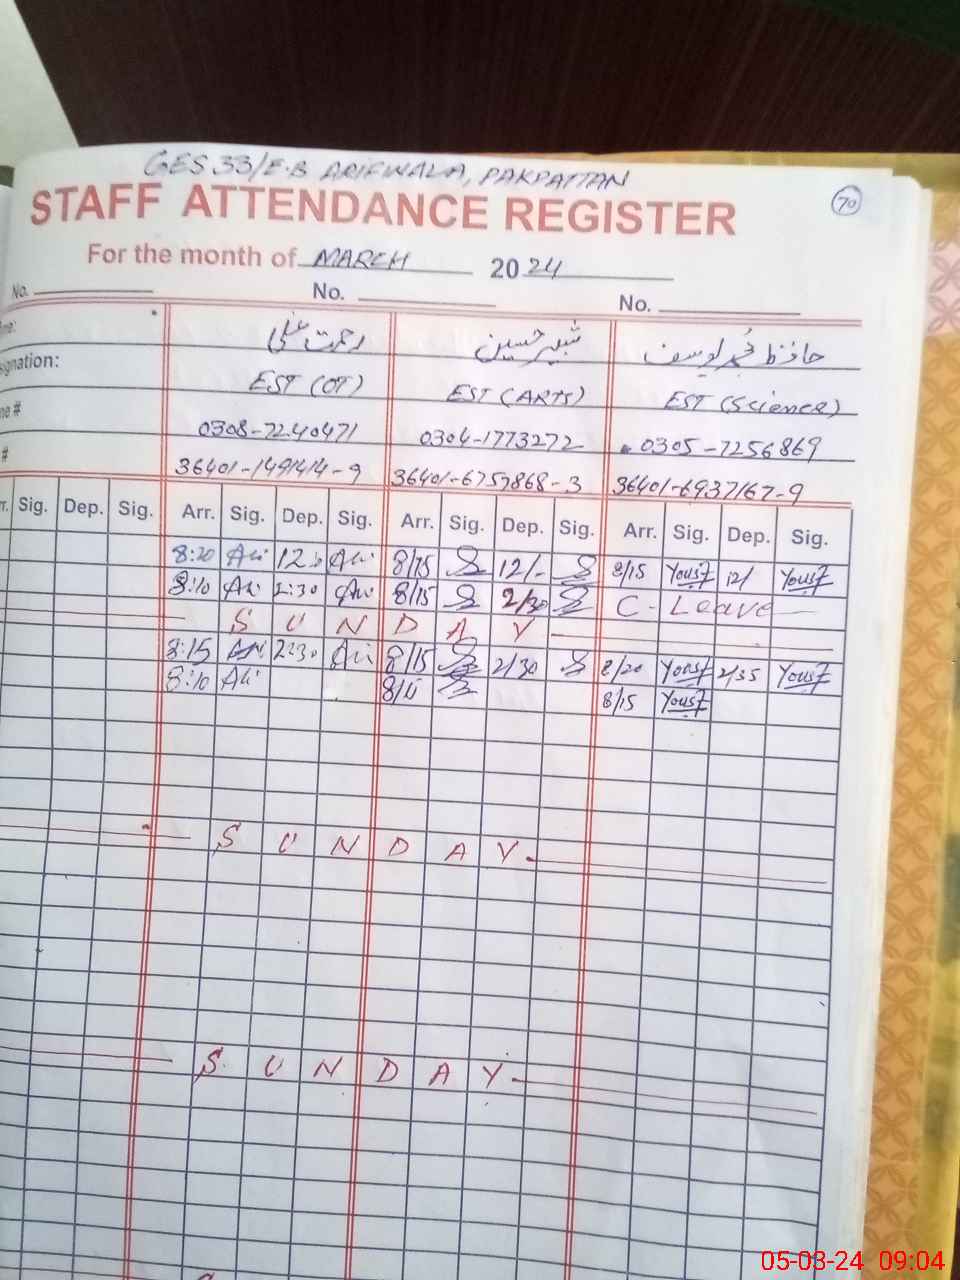 GES 33/E.B ARIFWALA, PAKPATTAN
STAFF ATTENDANCE REGISTER
70
For the month of MARCH 2024
No. No. No.
me: رحمت علی شبیر حسین حافظ محمد یوسف
signation: EST (OT) EST (ARTS) EST (Science)
ne # 0308-7240471 0304-1773272 0305-7256869
# 36401-1491414-9 36401-6757868-3 36401-6937167-9
r. Sig. Dep. Sig. Arr. Sig. Dep. Sig. Arr. Sig. Dep. Sig. Arr. Sig. Dep. Sig.
8:20 Ali Ali 8/15 12/- 8/15 Yousf 12/ Yousf
8:10 Ali 2:30 Ali 8/15 2/30 C- Leave
SUNDAY
8:15 Ali 2:30 Ali 8/15 2/30 8/20 Yousf 2/35 Yousf
8:10 Ali 8/15 Yousf
SUNDAY
SUNDAY
05-03-24 09:04